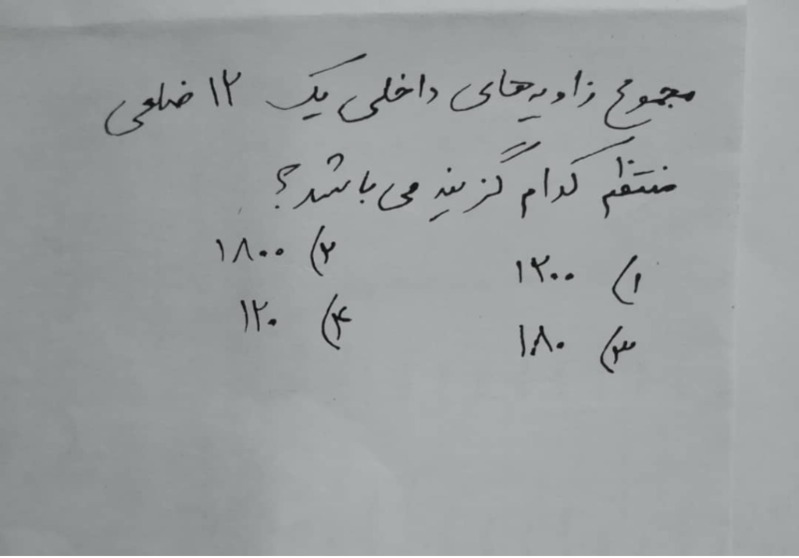 مجموع زاویه‌های داخلی یک ۱۲ ضلعی
منتظم کدام گزینه می باشد؟
۱) ۱۲۰۰ ۲) ۱۸۰۰
۳) ۱۸۰ ۴) ۱۲۰